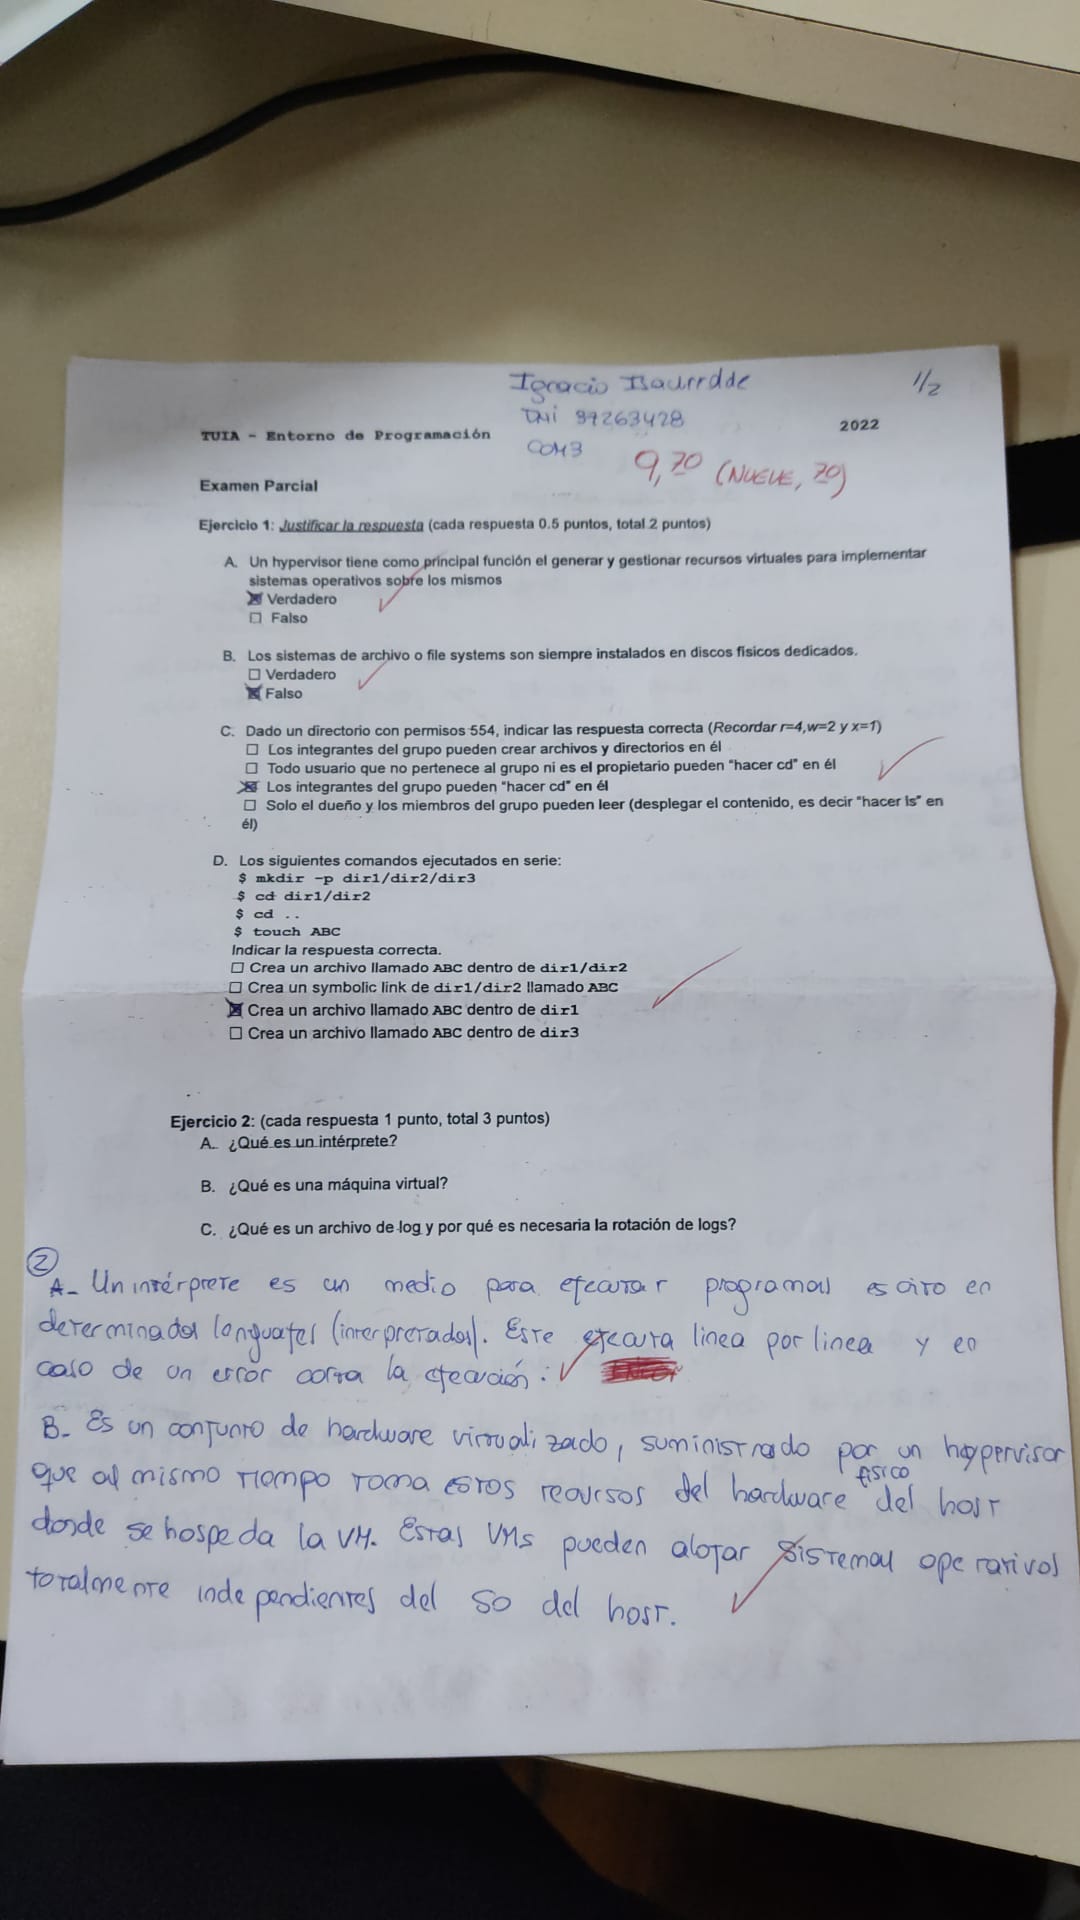 Ignacio Isaurralde
1/2
DNI 39263428
TUIA - Entorno de Programación
2022
COM3
9,70 (NUEVE, 70)
Examen Parcial
Ejercicio 1: Justificar la respuesta (cada respuesta 0.5 puntos, total 2 puntos)
A. Un hypervisor tiene como principal función el generar y gestionar recursos virtuales para implementar
sistemas operativos sobre los mismos
Verdadero
Falso
B. Los sistemas de archivo o file systems son siempre instalados en discos físicos dedicados.
Verdadero
Falso
C. Dado un directorio con permisos 554, indicar las respuesta correcta (Recordar r=4,w=2 y x=1)
Los integrantes del grupo pueden crear archivos y directorios en él
Todo usuario que no pertenece al grupo ni es el propietario pueden "hacer cd" en él
Los integrantes del grupo pueden "hacer cd" en él
Solo el dueño y los miembros del grupo pueden leer (desplegar el contenido, es decir "hacer ls" en
él)
D. Los siguientes comandos ejecutados en serie:
$ mkdir -p dir1/dir2/dir3
$ cd dir1/dir2
$ cd ..
$ touch ABC
Indicar la respuesta correcta.
Crea un archivo llamado ABC dentro de dir1/dir2
Crea un symbolic link de dir1/dir2 llamado ABC
Crea un archivo llamado ABC dentro de dir1
Crea un archivo llamado ABC dentro de dir3
Ejercicio 2: (cada respuesta 1 punto, total 3 puntos)
A. ¿Qué es un intérprete?
B. ¿Qué es una máquina virtual?
C. ¿Qué es un archivo de log y por qué es necesaria la rotación de logs?
2
A- Un intérprete es un medio para ejecutar programas escito en
determinados lenguajes (interpretados). Este ejecuta linea por linea y en
caso de un error corta la ejecución.
B- Es un conjunto de hardware virtualizado, suministrado por un haypervisor
que al mismo tiempo toma estos recursos del hardware fisico del host
donde se hospeda la VM. Estas VMs pueden alojar sistemas operativos
totalmente independientes del SO del host.